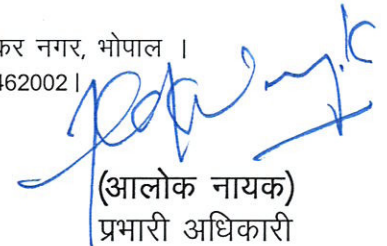 कर नगर, भोपाल ।
462002।
(आलोक नायक)
प्रभारी अधिकारी